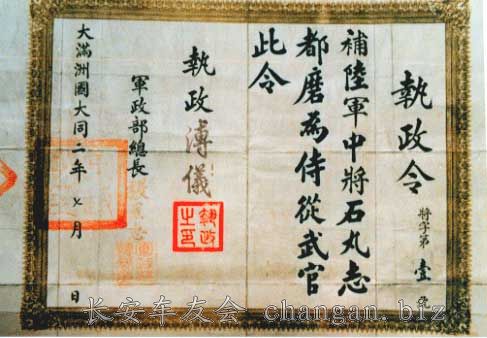 執政令
將字第壹號
補陸軍中將石丸志
都磨為侍從武官
此令
執政溥儀
執政之印
軍政部總長
大滿洲國大同二年七月 日
长安车友会 changan.biz